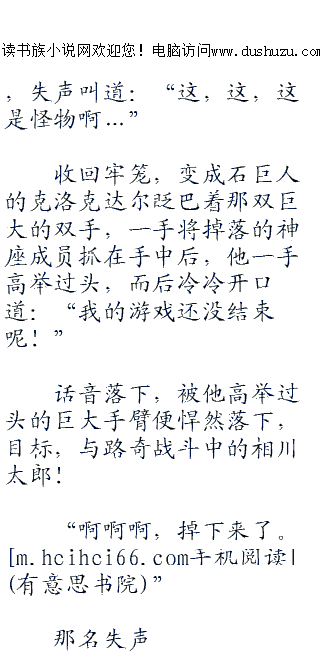 读书族小说网欢迎您！电脑访问www.dushuzu.com
，失声叫道：“这，这，这
是怪物啊…”
收回牢笼，变成石巨人
的克洛克达尔眨巴着那双巨
大的双手，一手将掉落的神
座成员抓在手中后，他一手
高举过头，而后冷冷开口
道：“我的游戏还没结束
呢！”
话音落下，被他高举过
头的巨大手臂便悍然落下，
目标，与路奇战斗中的相川
太郎！
“啊啊啊，掉下来了。
[m.hcihci66.com手机阅读|
(有意思书院)”
那名失声